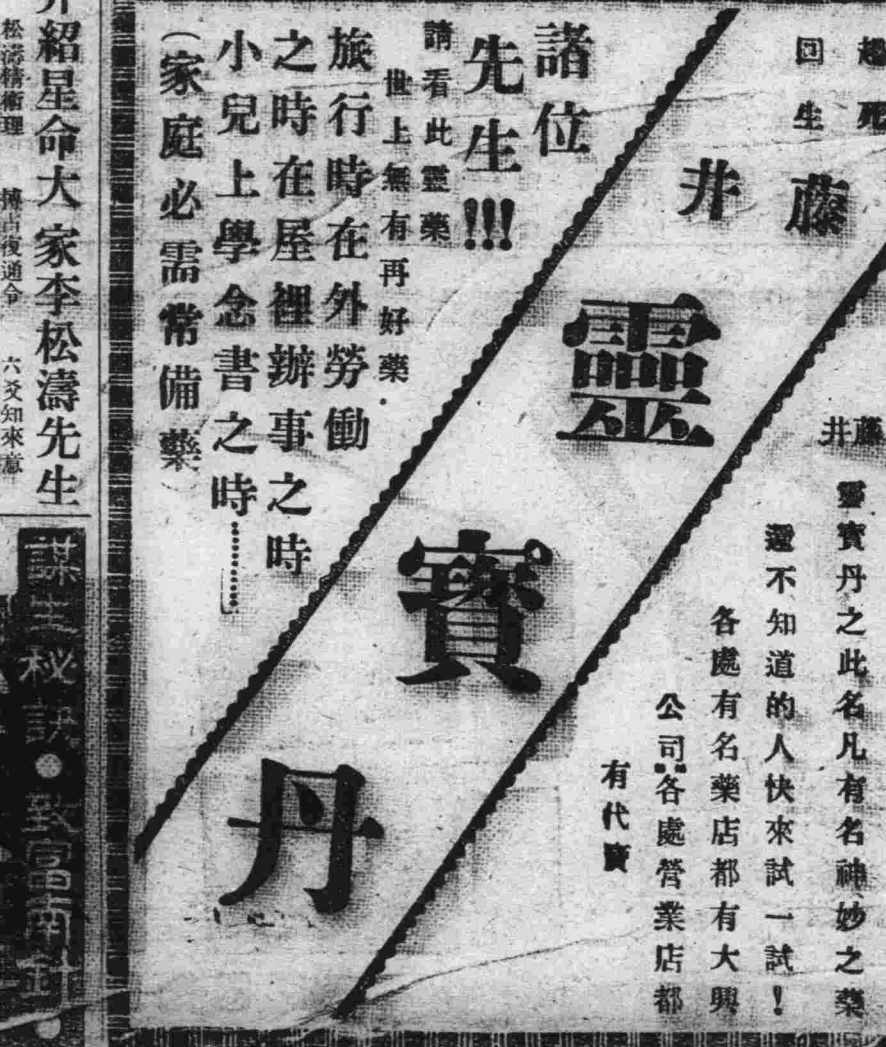 起死
回生
藤井
靈寶丹
藤井
靈寶丹之此名凡有名神妙之藥
還不知道的人快來試一試！
各處有名藥店都有大興
公司各處營業店都
有代賣
諸位
先生!!!
請看此靈藥
世上無有再好藥．
旅行時在外勞働
之時在屋裡辦事之時
小兒上學念書之時…………
（家庭必需常備藥）
介紹星命大家李松濤先生
松濤精術理 搏占後通令 六爻知來意
謀生秘訣●致富南針●